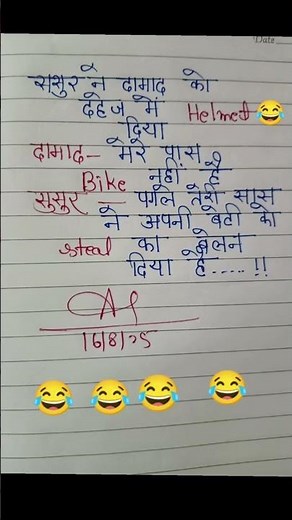 Date
ससुर ने दामाद को
दहेज में Helmet 😂
दिया
दामाद- मेरे पास
Bike नहीं है
सुसुर - पगले तेरी सास
ने अपनी बेटी को
steal का बेलन
दिया है.....!!
16/8/25
😂 😂 😂 😂